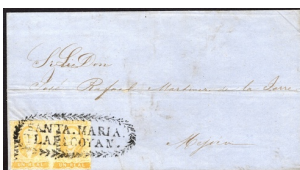 Sr. Dn. Don
José Rafael Martinez de la Torre
Mejico
SANTA. MARIA.
TLAPACOYAN.